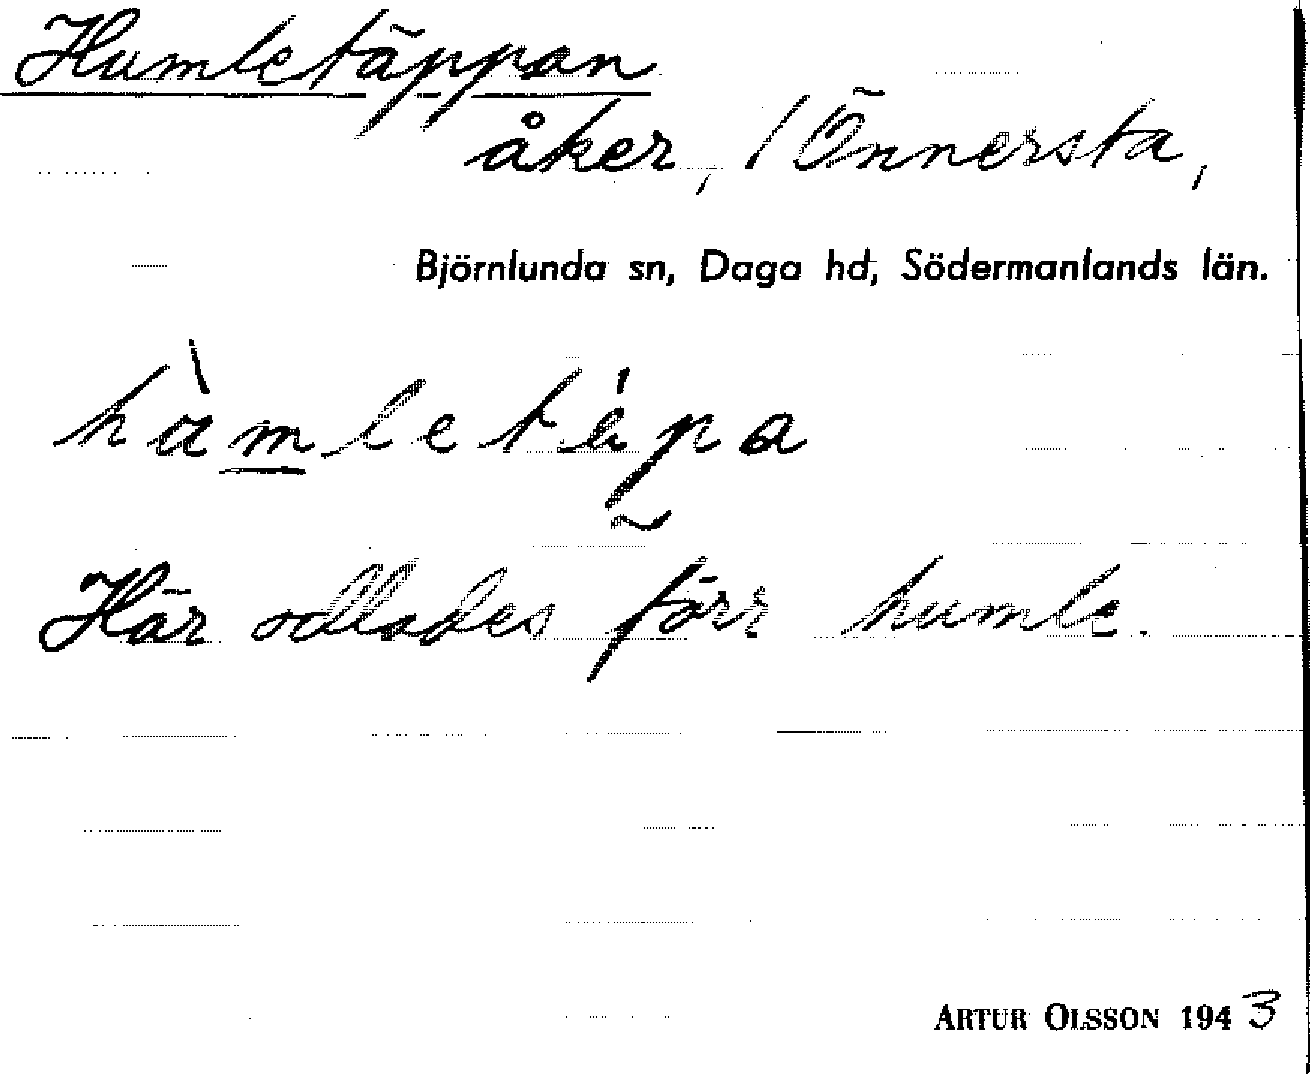 Humletäppan
åker, 1 Önnersta,
Björnlunda sn, Daga hd, Södermanlands län.
Här odlades förr humle.
ARTUR OLSSON 1943